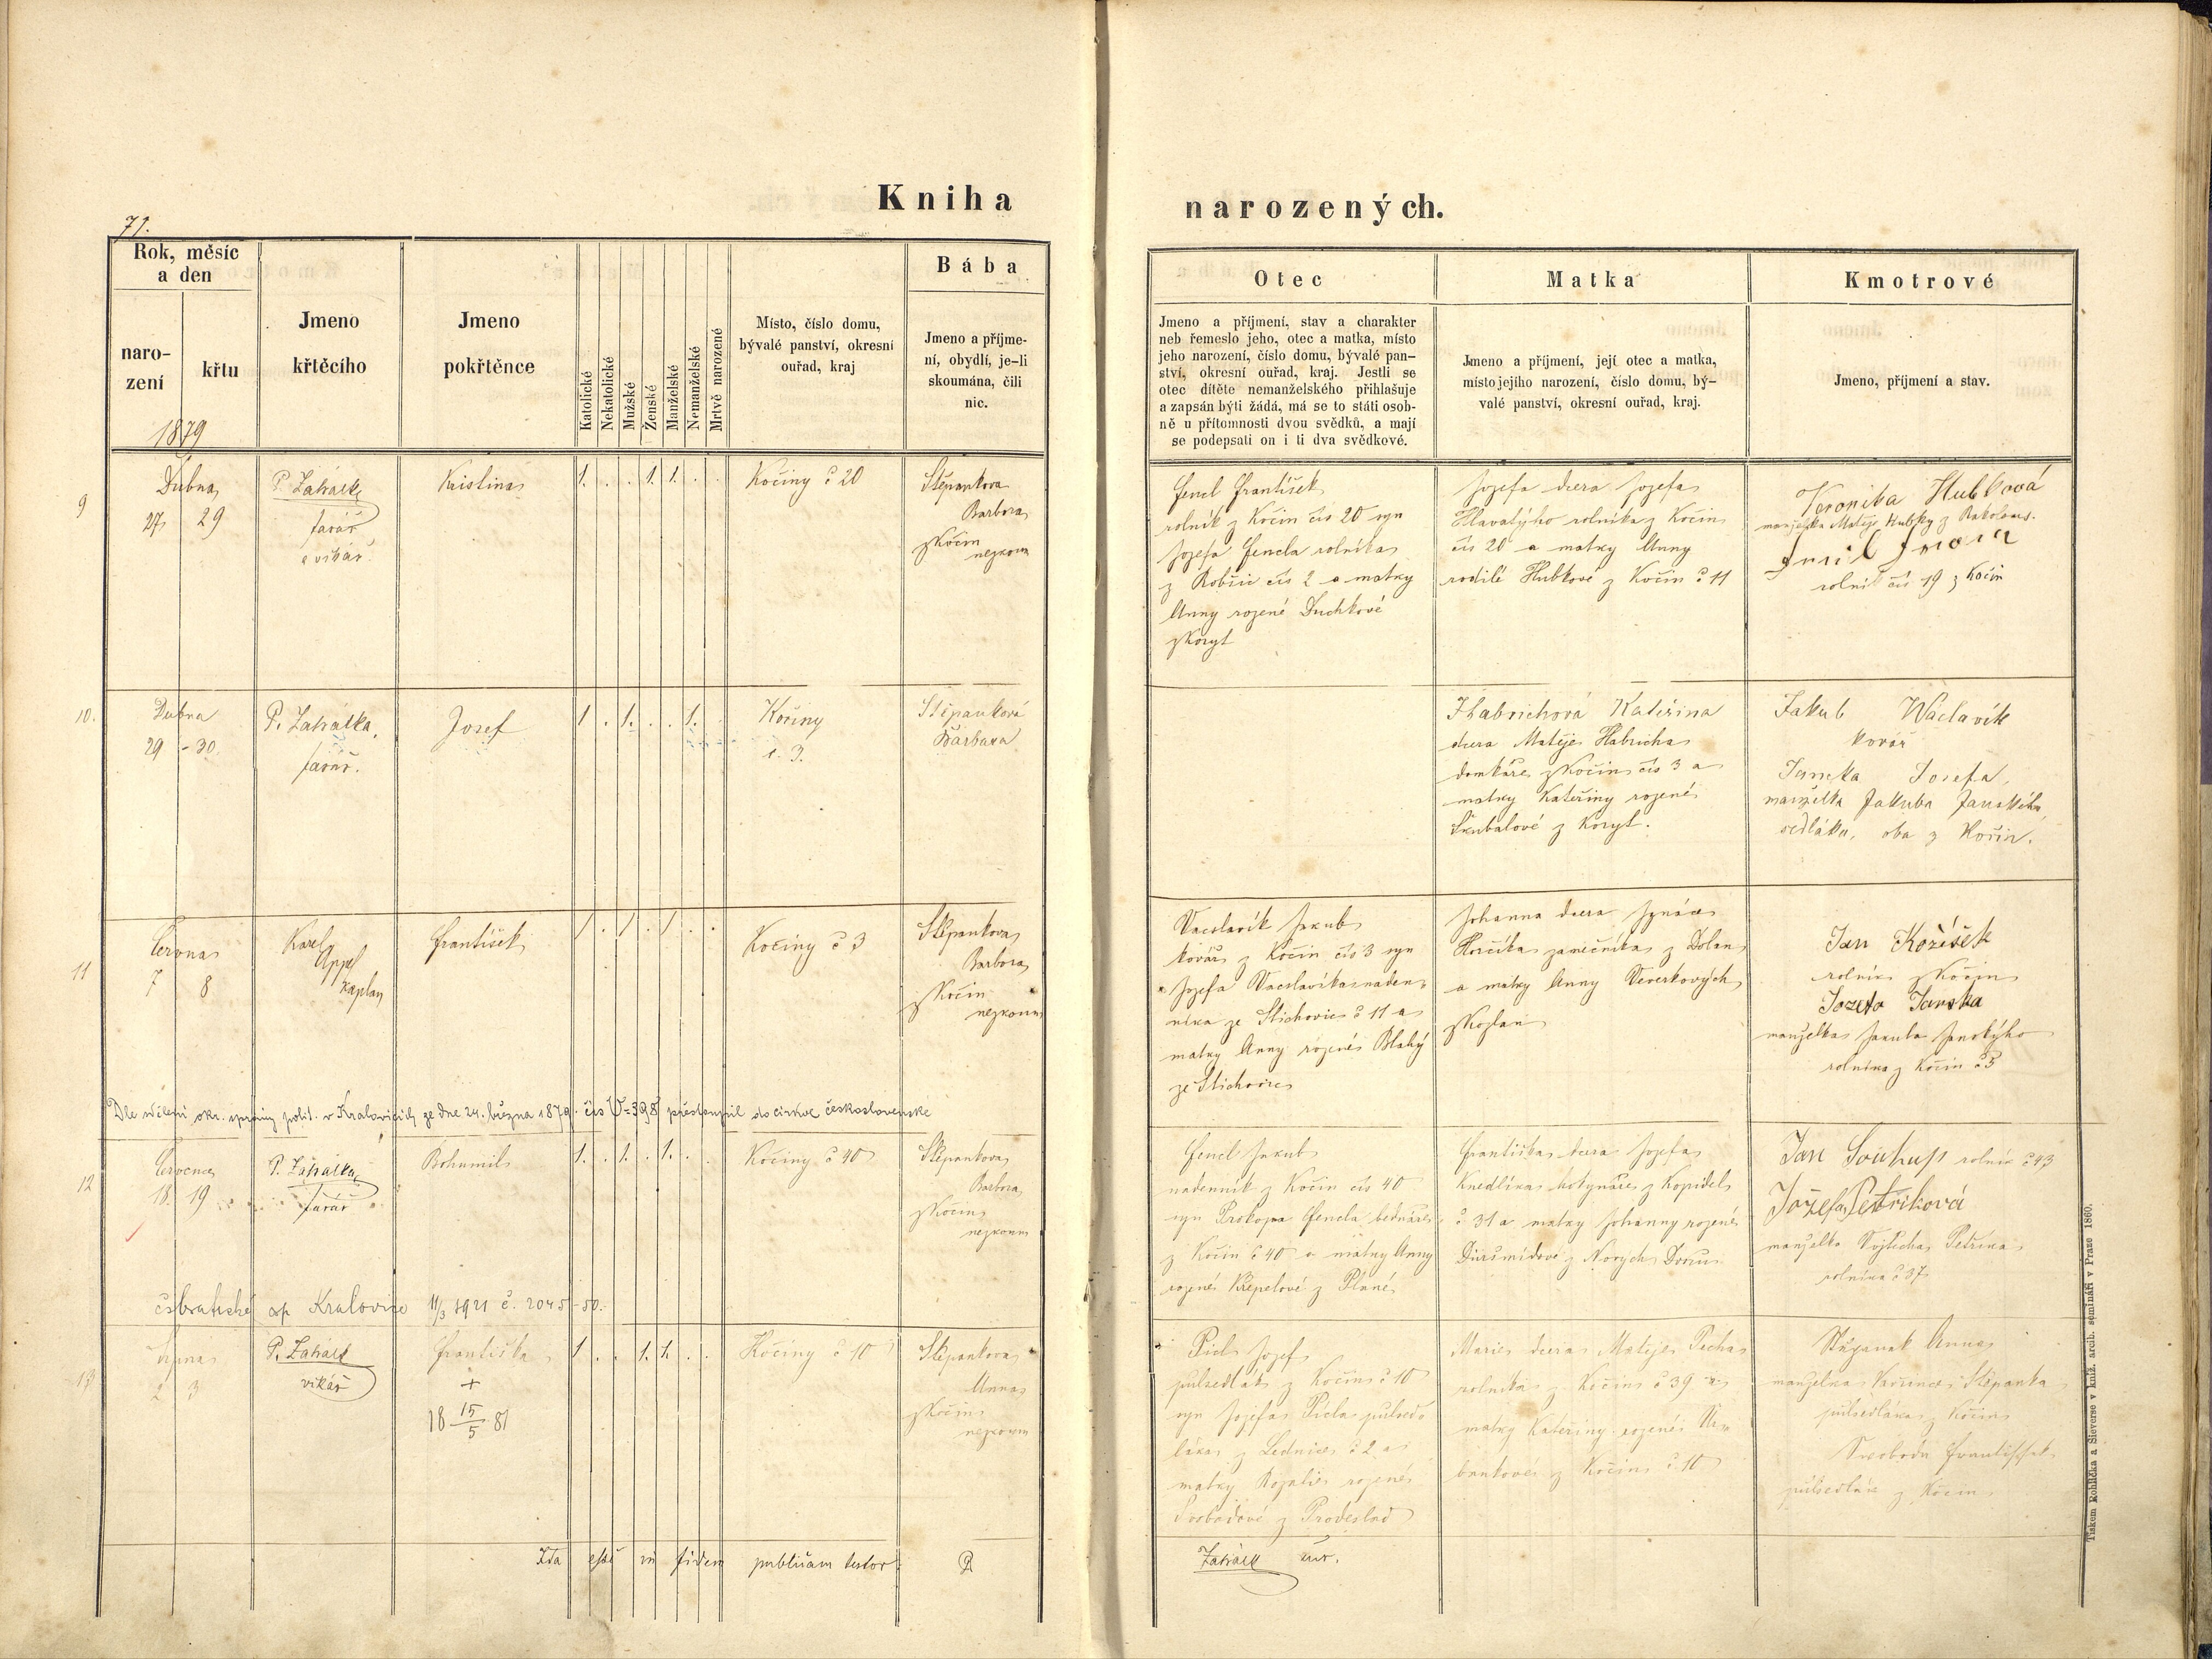 71.
Kniha narozených.
Rok, měsíc
a den
naro-
zení
křtu
1879
Jmeno
křtěcího
Jmeno
pokřtěnce
Katolické
Nekatolické
Mužské
Ženské
Manželské
Nemanželské
Mrtvě narozené
Místo, číslo domu,
bývalé panství, okresní
ouřad, kraj
Bába
Jmeno a příjme-
ní, obydlí, je-li
skoumána, čili
nic.
Otec
Jmeno a příjmení, stav a charakter
neb řemeslo jeho, otec a matka, místo
jeho narození, číslo domu, bývalé pan-
ství, okresní ouřad, kraj. Jestli se
otec dítěte nemanželského přihlašuje
a zapsán býti žádá, má se to státi osob-
ně u přítomnosti dvou svědků, a mají
se podepsati on i ti dva svědkové.
Matka
Jmeno a příjmení, její otec a matka,
místo jejího narození, číslo domu, bý-
valé panství, okresní ouřad, kraj.
Kmotrové
Jmeno, příjmení a stav.
9
Dubna
27 29
P. Zahálka
farář
a vikář
Kristina
1. . . 1. 1. . .
Kočiny č 20
Štěpankova
Barbora
z Kočin
nezkoum
Fencl František
rolník z Kočin čís 20 syn
Jozefa Fencla rolníka
z Robčic čís 2 a matky
Anny rozené Duchkové
z Koryt
Jozefa dcera Jozefa
Hlavatýho rolníka z Kočin
čís 20 a matky Anny
rodilé Hubkové z Kočin č 11
Veronika Hubková
manželka Matěje Hubky z Rakolous.
rolník čís 19 z Kočin
10.
Dubna
29 - 30.
P. Zahálka,
farář.
Josef
1 . 1. . . 1. .
Kočiny
č. 3.
Štěpanková
Barbara
Habrichová Kateřina
dcera Matěje Habricha
domkáře z Kočin čís 3 a
matky Kateřiny rozené
Škubalové z Koryt.
Jakub Wáclavík
kovář
Janska Josefa,
manželka Jakuba Janského,
sedláka, oba z Kočin.
11
Června
7 8
Karel
Appel
kaplan
František
1 . 1 . 1 . .
Kočiny č 3
Štěpankova
Barbora
z Kočin
nezkoum
Vacslavík Jakub
kovář z Kočin čís 3 syn
Jozefa Vacslavíka naden-
níka ze Stichovic č 11 a
matky Anny rozené Blahý
ze Stichovic
Johanna dcera Ignáce
Horčíka zámečníka z Dolan
a matky Anny Veverkových
z Kozlan
Jan Kožíšek
rolník z Kočin
Jozefa Janska
manželka Jakuba Janskýho
rolníka z Kočin č 5
Dle sdělení okr. správy polit. v Kralovicích ze dne 24. března 1879. čís V=398 přestoupil do církve československé
12
Července
18. 19
P. Zahálka
farář
Bohumil
1. . 1. . 1. . .
Kočiny č 40
Štěpankova
Barbora
z Kočin
nezkoum
Fencl Jakub
nadenník z Kočin čís 40
syn Prokopa Fencla bednáře
z Kočin č 40 a matky Anny
rozené Křepelové z Plané
Františka dcera Jozefa
Knedlíka hokynáře z Kopidel
č 31 a matky Johanny rozené
Diršmidové z Nových Dvorů
Jan Soukup rolník č 43
Jozefa Petříková
manželka Vojtěcha Petříka
rolníka č 37
čsbratrské osp Kralovice 11/3 1921 č. 2045-50.
13
Srpna
2 3
P. Zahálk
vikář
Františka
+
18 15/5 81
1 . . 1. 1. . .
Kočiny č 10
Štěpankova
Anna
z Kočin
nezkoum
Pícl Jozef
půlsedlák z Kočin č 10
syn Jozefa Pícla půlsed-
láka z Lednice č 2 a
matky Rozalie rozené
Svobodové z Prodeslad
Marie dcera Matěje Pecha
rolníka z Kočin č 39 a
matky Kateřiny rozené Ur-
bankové z Kočin č 10
Štěpanek Anna
manželka Vavřince Štěpanka
půlsedláka z Kočin
Swoboda František
půlsedlák z Kočin
Ita esse in fidem publicam testor P. Zahálk cur.
Tiskem Rohlíčka a Sieverse v kníž. arcib. semináři v Praze 1860.